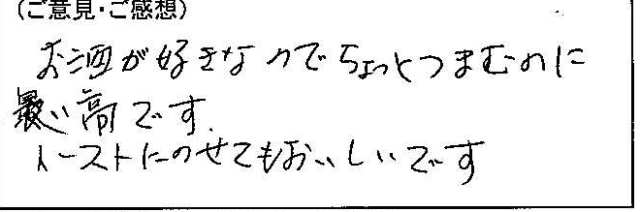 (ご意見・ご感想)
お酒が好きなのでちょっとつまむのに
最い高です.
トーストにのせてもおいしいです